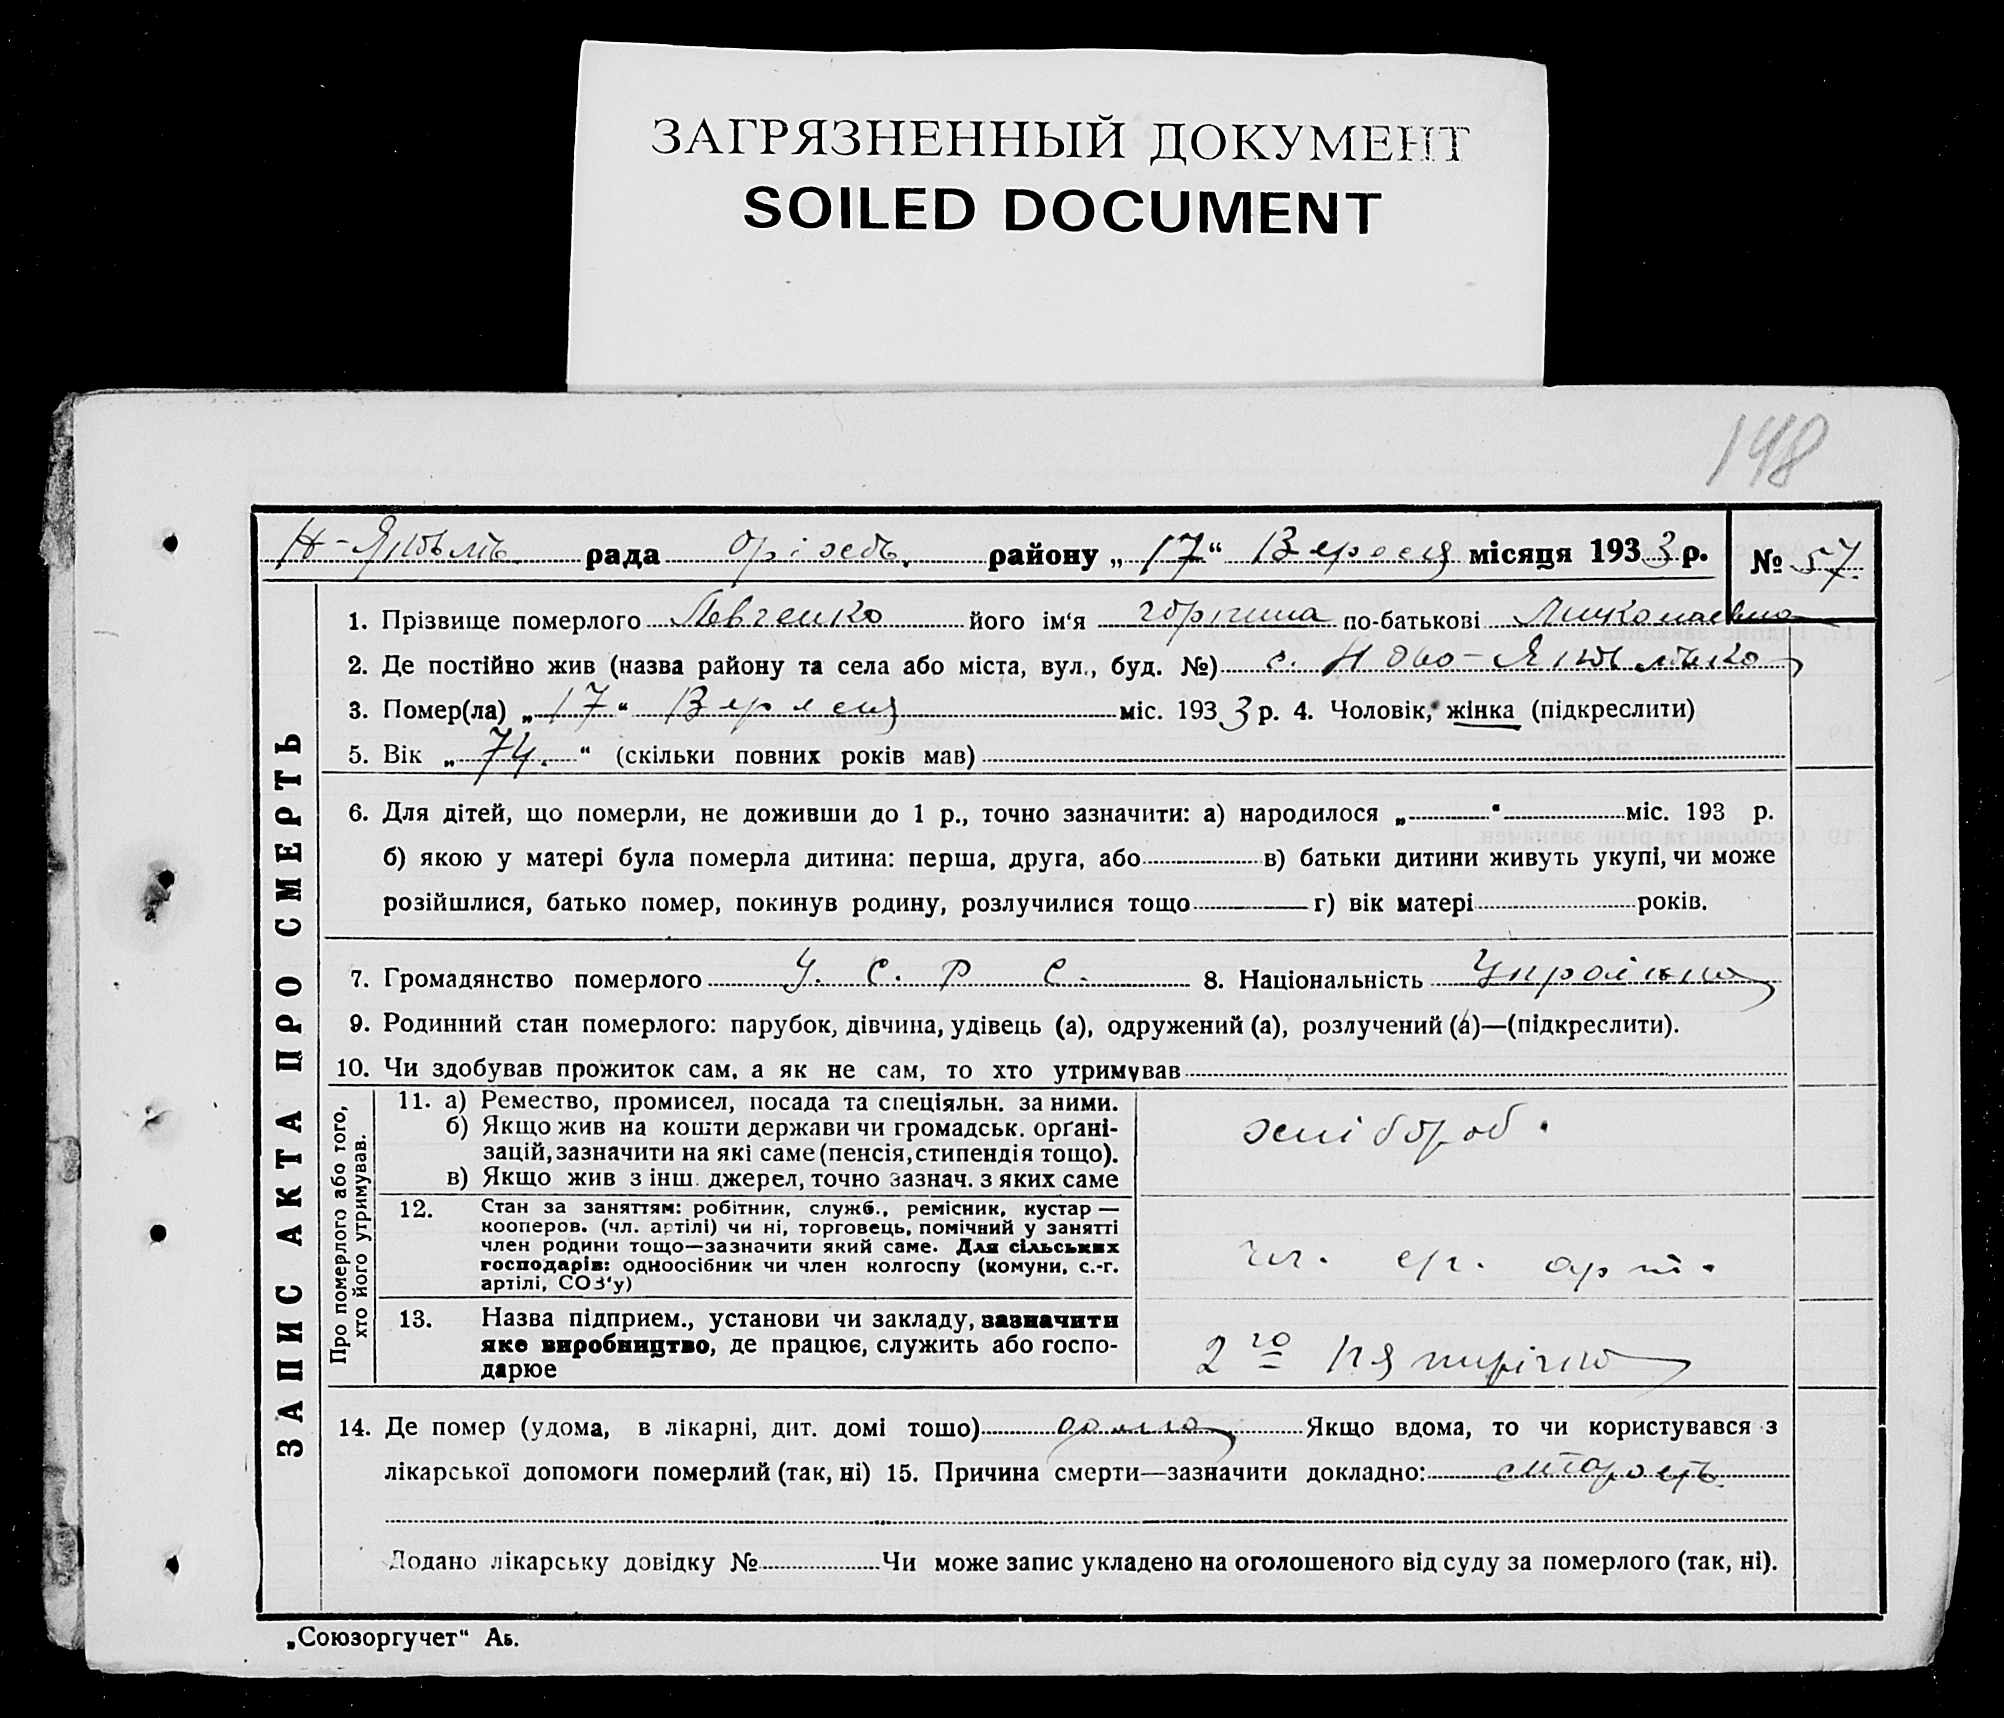 ЗАГРЯЗНЕННЫЙ ДОКУМЕНТ
SOILED DOCUMENT
148
рада оріхов. району „17“ Вересня місяця 1933 р. № 57
1. Прізвище померлого Левченко його ім‘я по-батькові Миколаевна
2. Де постійно жив (назва району та села або міста, вул., буд. №) с. Ново-Яковлівка
3. Помер(ла) „17“ Вересня міс. 1933 р. 4. Чоловік, жінка (підкреслити)
5. Вік „74.“ (скільки повних років мав)
6. Для дітей, що померли, не доживши до 1 р., точно зазначити: а) народилося „ “ міс. 193 р.
б) якою у матері була померла дитина: перша, друга, або в) батьки дитини живуть укупі, чи може
розійшлися, батько помер, покинув родину, розлучилися тощо г) вік матері років.
7. Громадянство померлого У. С. Р. С. 8. Національність Українка
9. Родинний стан померлого: парубок, дівчина, удівець (а), одружений (а), розлучений (а)—(підкреслити).
10. Чи здобував прожиток сам, а як не сам, то хто утримував
ЗАПИС АКТА ПРО СМЕРТЬ
Про померлого або того,
хто його утримував.
11. а) Ремество, промисел, посада та спеціяльн. за ними.
б) Якщо жив на кошти держави чи громадськ. орґані-
зацій, зазначити на які саме (пенсія, стипендія тощо).
в) Якщо жив з інш. джерел, точно зазнач. з яких саме
хлібороб.
12. Стан за заняттям: робітник, служб., ремісник, кустар —
кооперов. (чл. артілі) чи ні, торговець, помічний у занятті
член родини тощо—зазначити який саме. Для сільських
господарів: одноосібник чи член колгоспу (комуни, с.-г.
артілі, СОЗ‘у)
чл. с/г. арт.
13. Назва підприєм., установи чи закладу, зазначити
яке виробництво, де працює, служить або госпо-
дарює
2го Пятирічка
14. Де помер (удома, в лікарні, дит. домі тощо) дома Якщо вдома, то чи користувався з
лікарської допомоги померлий (так, ні) 15. Причина смерти—зазначити докладно: старость.
Додано лікарську довідку № Чи може запис укладено на оголошеного від суду за померлого (так, ні).
„Союзоргучет“ Аб.